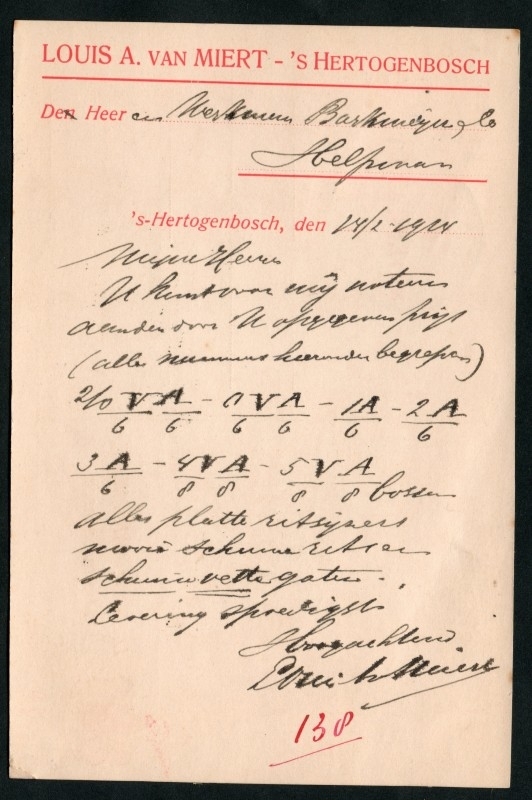 LOUIS A. VAN MIERT - 'S HERTOGENBOSCH
Den Heer en Werkman Barkmeijer & Co
Helpman
's-Hertogenbosch, den 14/2 1924
Mijne Heeren
U kunt voor mij noteeren
aan den door U opgegeven prijs
(alles nummers hieronder begrepen)
2/0 V A - 0 V A - 1 A - 2 A
6 6 6 6 6 6
3 A - 4 V A - 5 V A
6 8 8 8 8 bossen
alles platte
mooie schuine
schuine vette gaten.
Levering spoedigst
Hoogachtend
Louis A v Miert
138